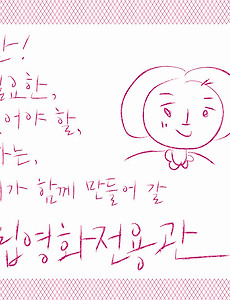 요한,
어야 할,
는,
가 함께 만들어 갈
립영화전용관